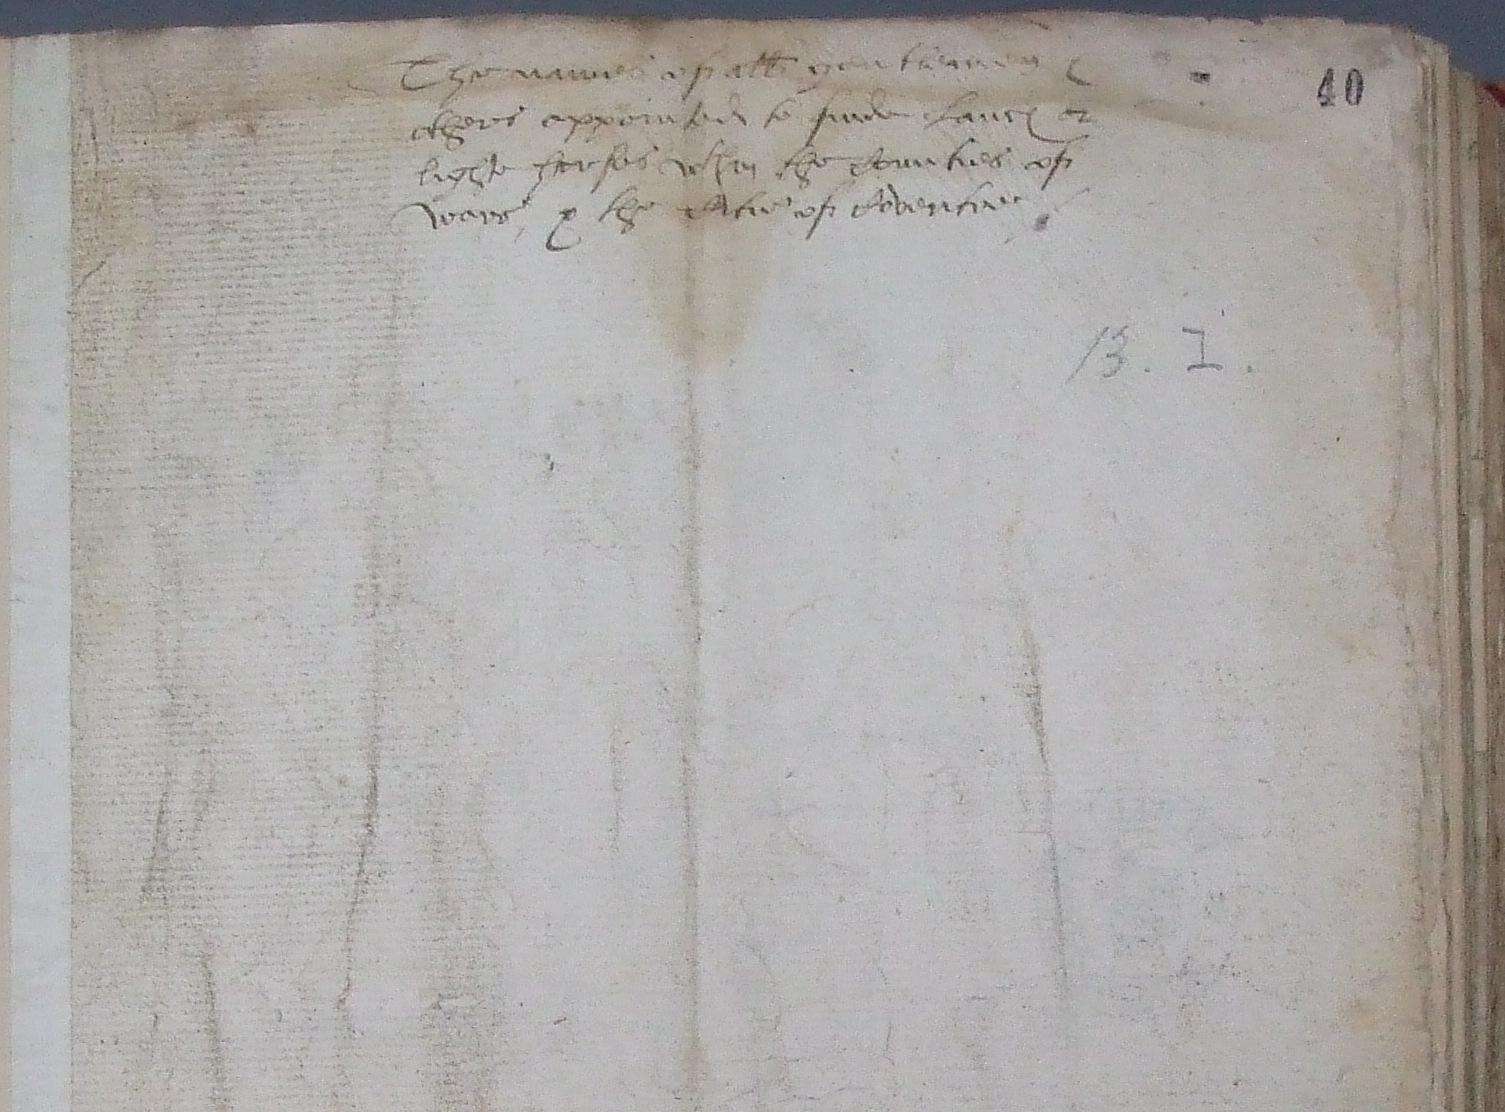 The names of all gentlemen &
others appointed to finde launc or
light horses wthin the Counties of
warr & the Citie of Coventrie
40
13. I.